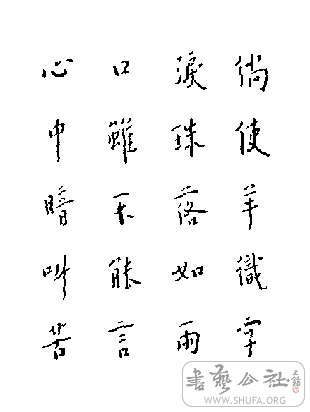 倘使羊識字
淚珠落如雨
口雖不能言
心中暗叫苦
書藝公社
WWW.SHUFA.ORG